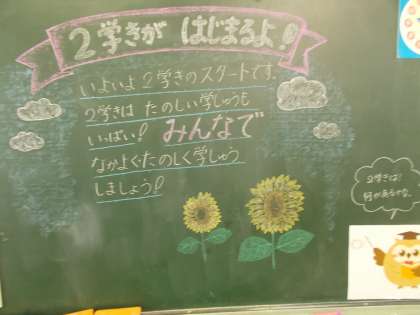 2学きが はじまるよ!
いよいよ2学きのスタートです。
2学きは たのしい学しゅうも
いっぱい! みんなで
なかよく・たのしく学しゅう
しましょう!
2学きは
何があるかな。